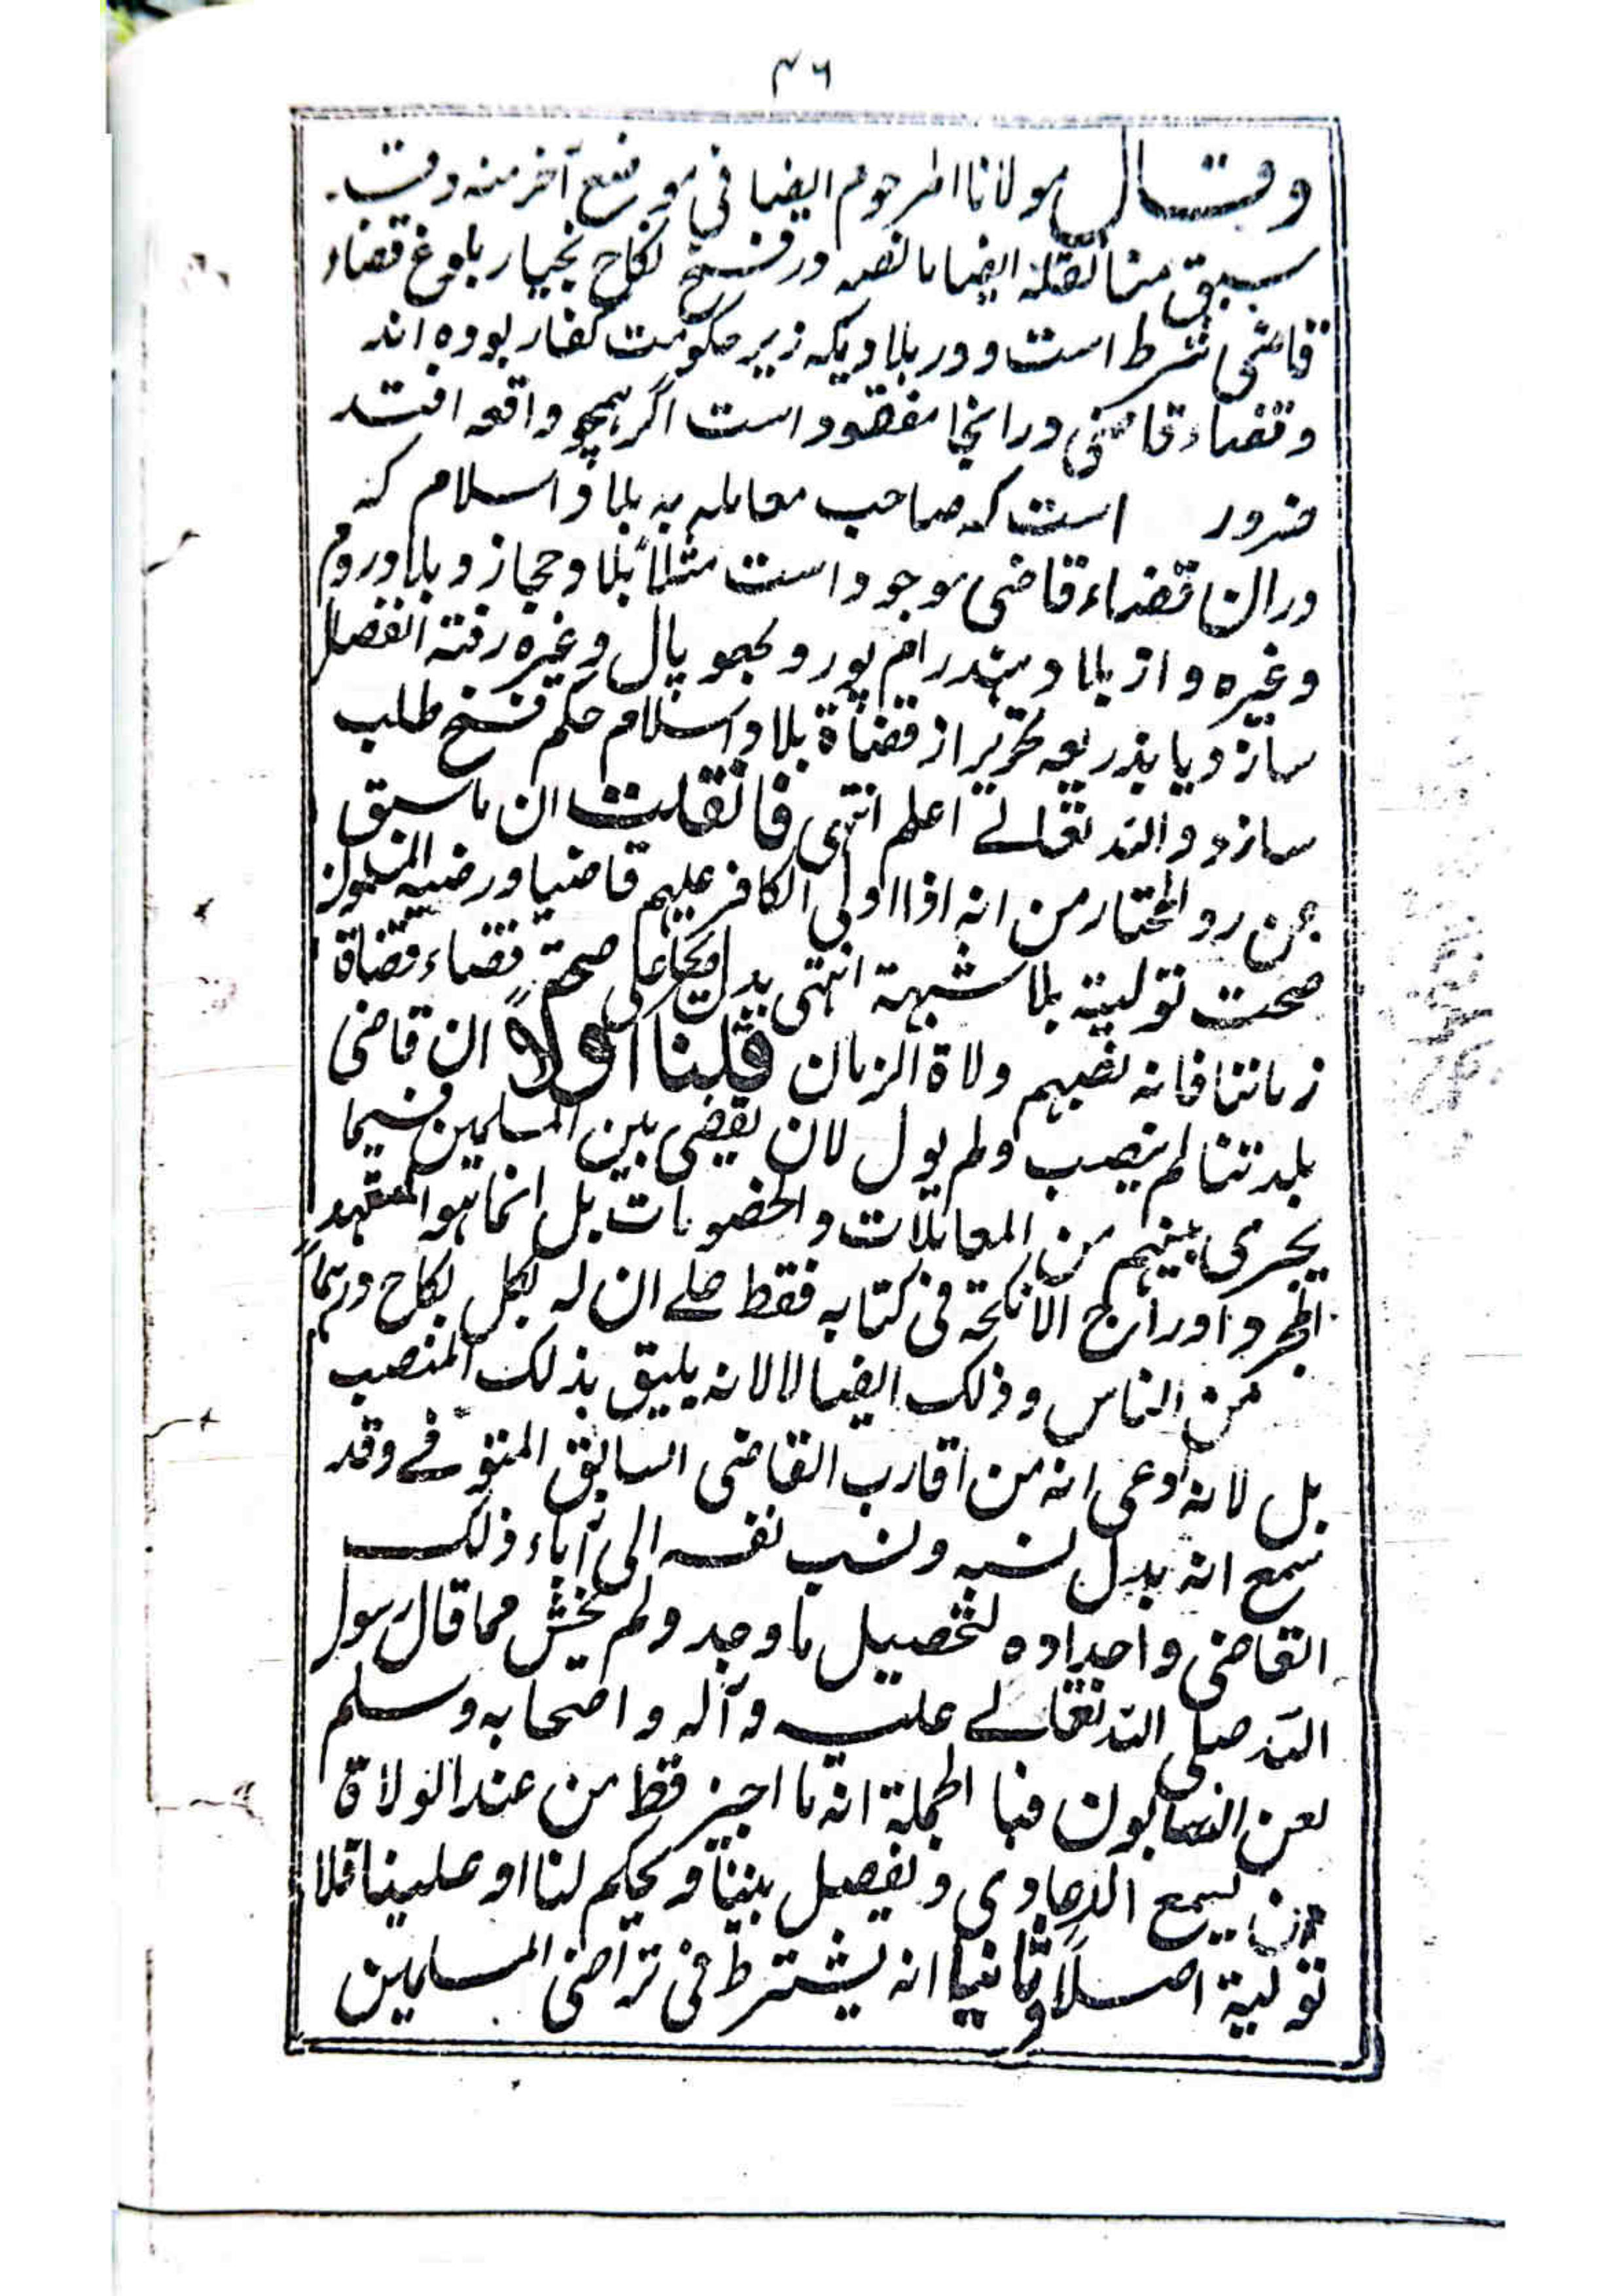 ٤٦
وقال مولانا المرحوم ایضا فی موضع آخر منه وقد
سبق منا نقله ایضا ما نصه در فسخ نکاح بخیار بلوغ قضاء
قاضی شرط است و در بلادیکه زیر حکومت کفار بوده اند
و قضاء قاضی در انجا مفقود است اگر همچو واقعه افتد
ضرور است که صاحب معامله به بلاد اسلام که
در ان قضاء قاضی موجود است مثلاً بلاد حجاز و بلاد روم
وغیره و از بلاد هند رام پور و بھوپال وغیره رفته انفصال
سازد و یا بذریعه تحریر از قضاة بلاد اسلام حکم فسخ طلب
سازد و الله تعالے اعلم انتهی فانقلت ان ما سبق
عن رد المختار من انه اذا اولی الکافر علیهم قاضیا ورضیه المسلمون
صحت تولیته بلا شبهة انتهی یدل علی صحة قضاء قضاة
زماننا فانه نصبهم ولاة الزمان قلنا اولاً ان قاضی
بلدتنا لم ینصب ولم یول لان یقضی بین المسلمین فیما
یجری بینهم من المعاملات والخصومات بل انما هو لتعهد
المجر و اوراج الانکحة فی کتابه فقط علے ان له لکل نکاح درهماً
من الناس وذلک ایضا لا لانه یلیق بذلک المنصب
بل لانه ادعی انه من اقارب القاضی السابق المتوفے وقد
سمع انه بدل نسبه ونسب نفسه الی آباء ذلک
القاضی واجداده لتحصیل ما وجد ولم یخش مما قال رسول
الله صلی الله تعالے علیه وآله واصحابه وسلم
لعن النسابون فبا الجملة انه ما اجیز قط من عند الولاة
من یسمع الدعاوی و یفصل بیننا و یحکم لنا او علینا فلا
تولیة اصلاً وثانیا انه یشترط فی تراضی المسلمین